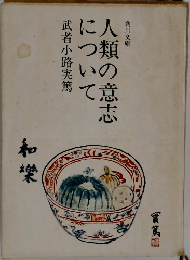 角川文庫
人類の意志
について
武者小路実篤
和樂
實篤